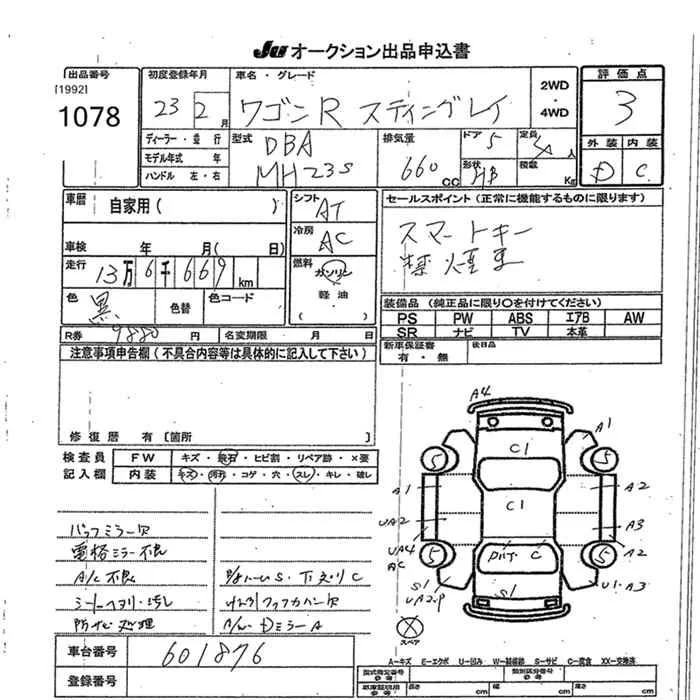 JU オークション出品申込書
出品番号
[1992]
1078
初度登録年月
23 2月
車名・グレード
ワゴンR スティングレイ
2WD
・
4WD
評価点
3
外装 内装
D C
ディーラー・並行
モデル年式 年
ハンドル 左・右
型式
DBA
MH23S
排気量
660 cc
ドア 5
形状 HB
定員 4人
積載 Kg
車歴
自家用( )
シフト AT
セールスポイント (正常に機能するものに限ります)
スマートキー
禁煙車
車検 年 月( 日)
冷房 AC
走行 13万6千669km
燃料 ガソリン
軽油
( )
色 黒
色替
色コード
装備品 (純正品に限り○を付けてください)
PS PW ABS エアB AW
SR ナビ TV 本革
R券 9880 円
名変期限 月 日
新車保証書
有・無
後日品
注意事項申告欄 (不具合内容等は具体的に記入して下さい)
修復歴 有 [箇所 ]
検査員
記入欄
FW キズ・飛石・ヒビ割・リペア跡・×要
内装 キズ・汚れ・コゲ・穴・スレ・キレ・破し
バックミラー欠
電格ミラー不良
A/C不良
シートヘタリ・汚し
防サビ処理
S・下廻りC
A
A4
A1
C1
5
5
A1
A2
C1
UA2
A3
UA4
AC
A2
5
C
5
S1
S1
U1・A3
スペア
車台番号 601876
登録番号
A=キズ E=エクボ U=凹み W=補修跡 S=サビ C=腐食 XX=交換済
型式指定番号
参考
類別区分番号
参考
参考
長さ cm
幅 cm
高さ cm